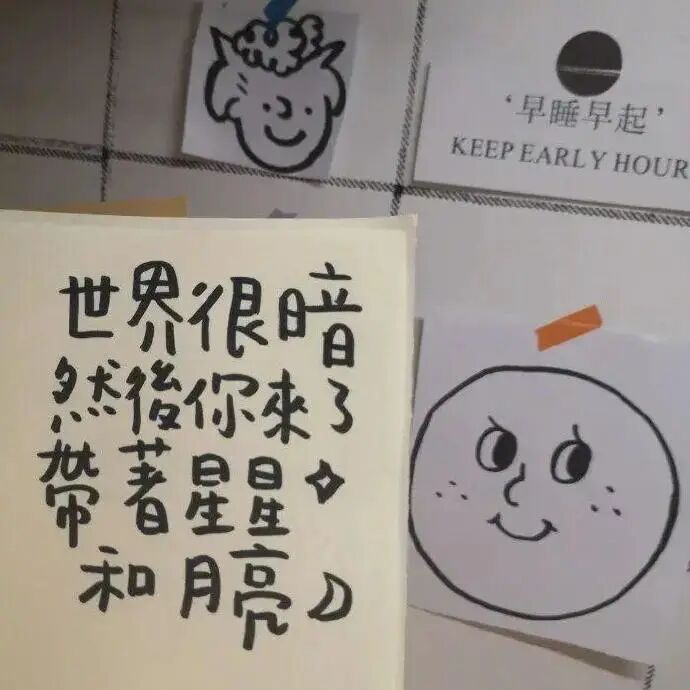 ‘早睡早起’
KEEP EARLY HOUR
世界很暗
然後你來了
帶著星星
和月亮